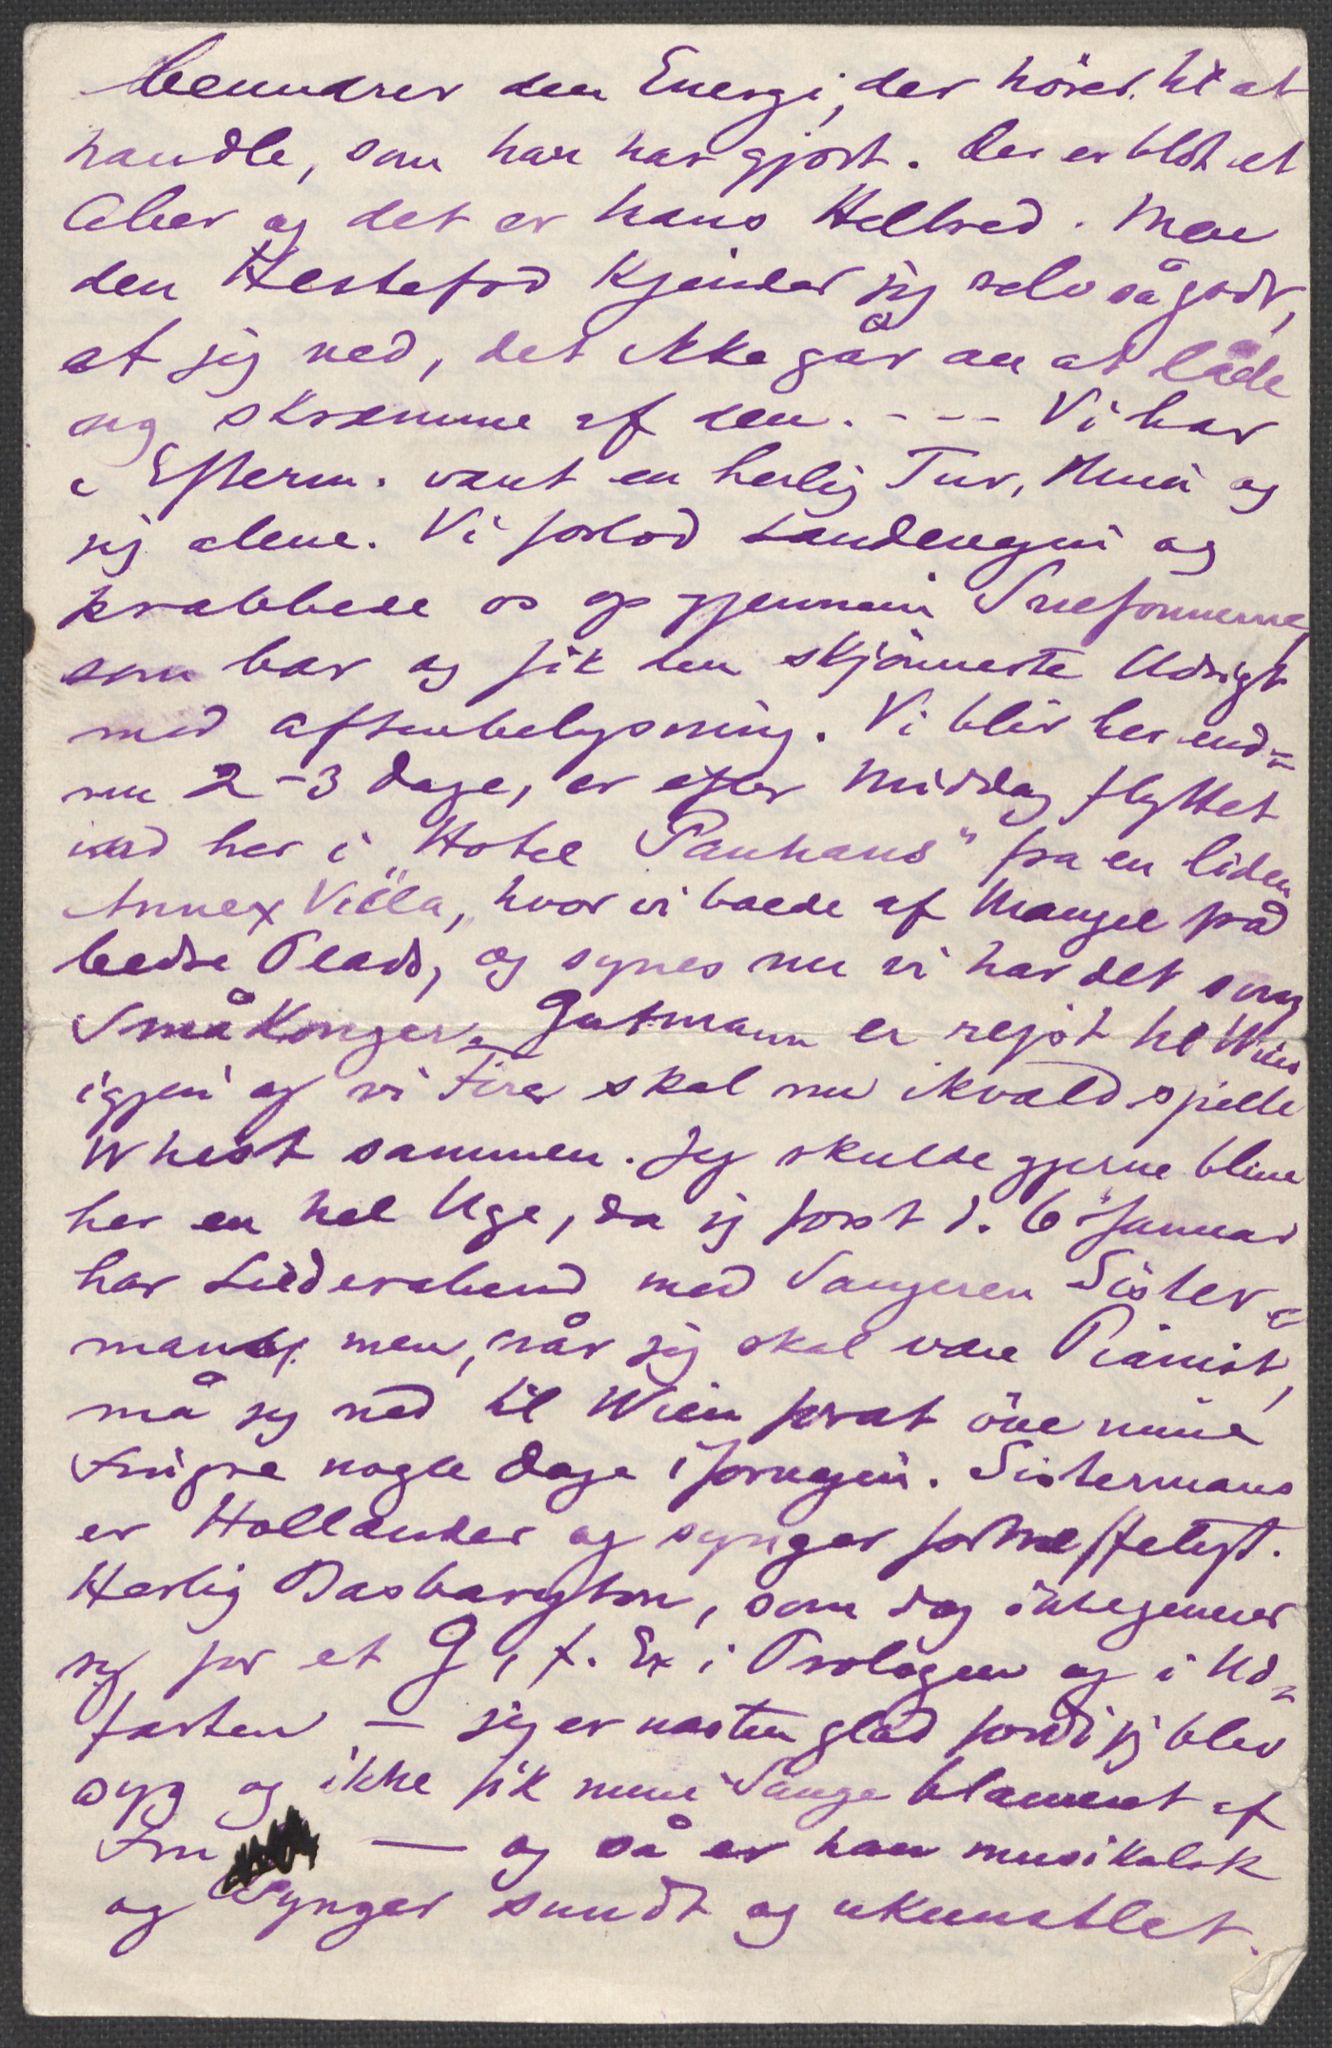 beundrer den Energi, der hører til at
handle, som han har gjort. Der er blot et
Aber og det er hans Helbred. Men
den Hestefod kjender jeg selv så godt,
at jeg ved, det ikke går an at lade
sig skræmme af den. - - - Vi har
i Efterm. vært en herlig Tur, Nina og
jeg alene. Vi forlod Landevejen og
krabbede os op gjennem Snefonnerne,
som bar og fik den skjönneste Udsigt
med aftenbelysning. Vi blir her end=
nu 2-3 Dage, er efter Middag flyttet
ind her i „Hotel Panhans" fra en liden
Annex Villa, hvor vi boede af Mangel på
bedre Plads, og synes nu vi har det som
Småkonger. Gutmann er rejst til Wien
igjen og vi Fire skal nu ikvæld spille
Whist sammen. Jeg skulde gjerne blive
her en hel Uge, da jeg først d. 6 Januar
har Liederabend med Sangeren Sister=
mans, men, når jeg skal være Pianist,
må jeg ned til Wien forat öve mine
Fingre nogle Dage iforvejen. Sistermans
er Hollænder og synger fortræffeligt.
Herlig Basbaryton, som dog ikke generer
sig for et G, f. Ex i Prologen og i Ud=
farten — jeg er næsten glad fordi jeg blev
syg og ikke fik mine Sange blameret af
Fru — og så er han musikalsk
og synger sundt og ukunstlet.